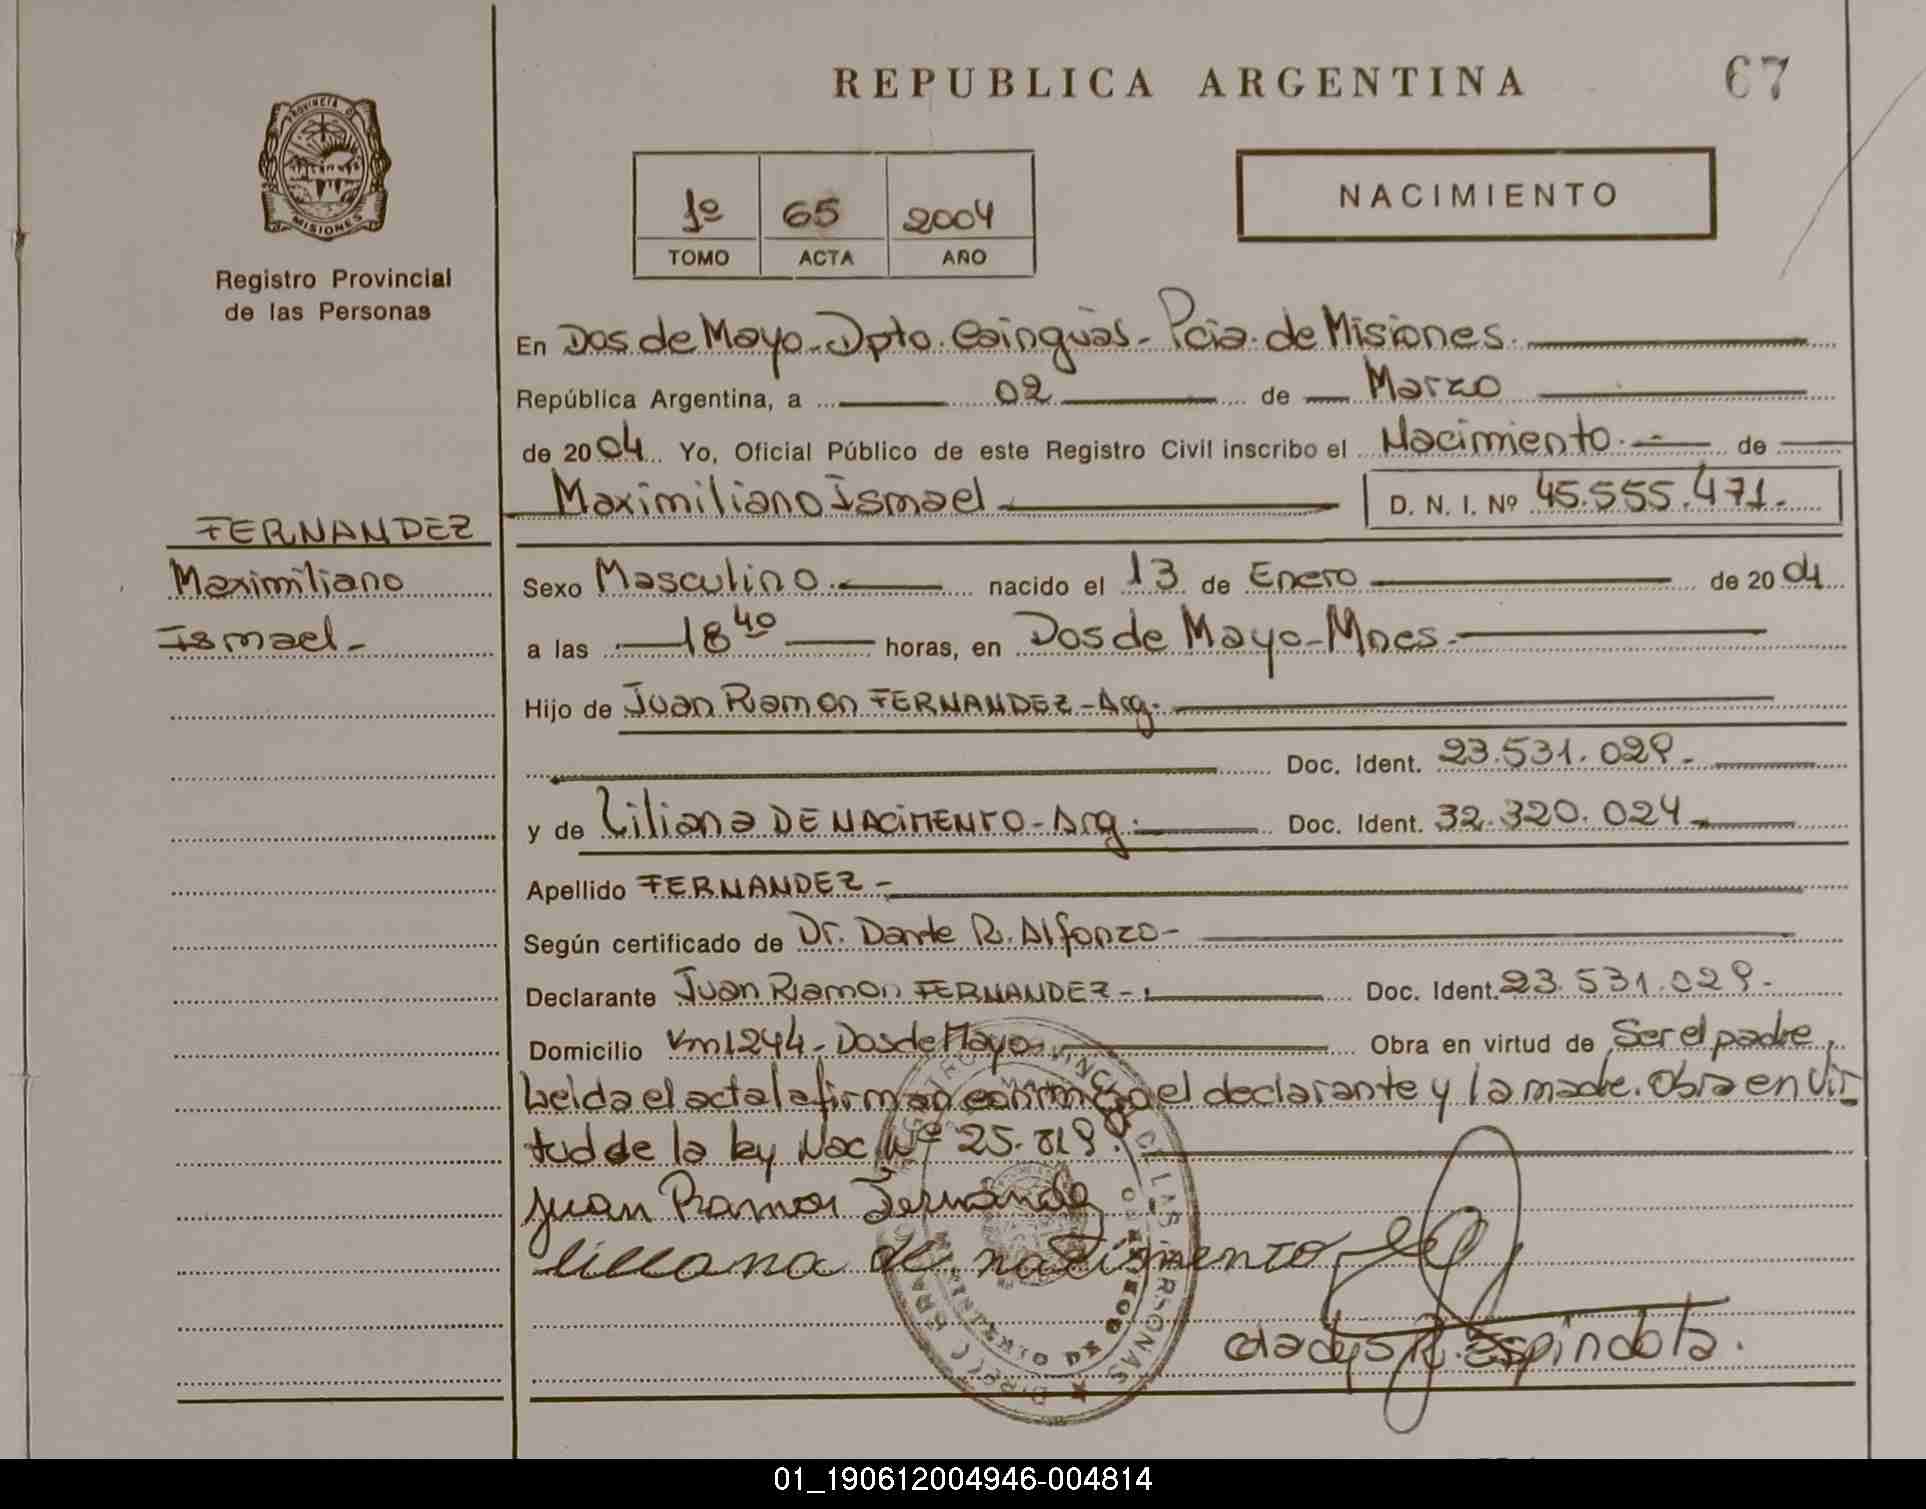 REPUBLICA ARGENTINA
67
PROVINCIA DE
MISIONES
Registro Provincial
de las Personas
1º 65 2004
TOMO ACTA AÑO
NACIMIENTO
En Dos de Mayo - Dpto. Cainguás - Pcia. de Misiones.
República Argentina, a 02 de Marzo
de 2004 Yo, Oficial Público de este Registro Civil inscribo el Nacimiento. - de
Maximiliano Ismael D. N. I. Nº 45.555.471.-
FERNANDEZ
Maximiliano
Ismael -
Sexo Masculino. nacido el 13 de Enero de 2004
a las 18 40 horas, en Dos de Mayo - Mnes.
Hijo de Juan Ramon FERNANDEZ - Arg.
Doc. Ident. 23.531.029.-
y de Liliana DE NACIMENTO - Arg. Doc. Ident. 32.320.024
Apellido FERNANDEZ -
Según certificado de Dr. Dante R. Alfonzo -
Declarante Juan Ramon FERNANDEZ - Doc. Ident. 23.531.029.-
Domicilio Km 1244 - Dos de Mayo. Obra en virtud de Ser el padre,
Leida el acta la firman conmigo el declarante y la madre. Obra en vir
tud de la ley Nac Nº 25.819.
Juan Ramon Fernandez
liliana de nacimento
Gladys R. Espindola.
01_190612004946-004814